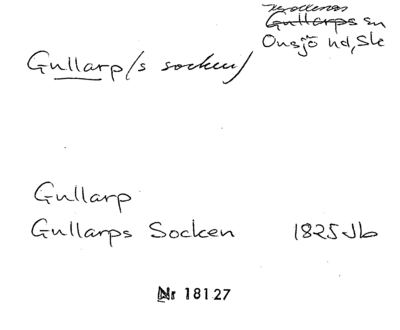 Gullarps sn
Onsjö hd, Sk
Gullarp/s socken/
Gullarp
Gullarps Socken 1825 Jb
Nr 18127